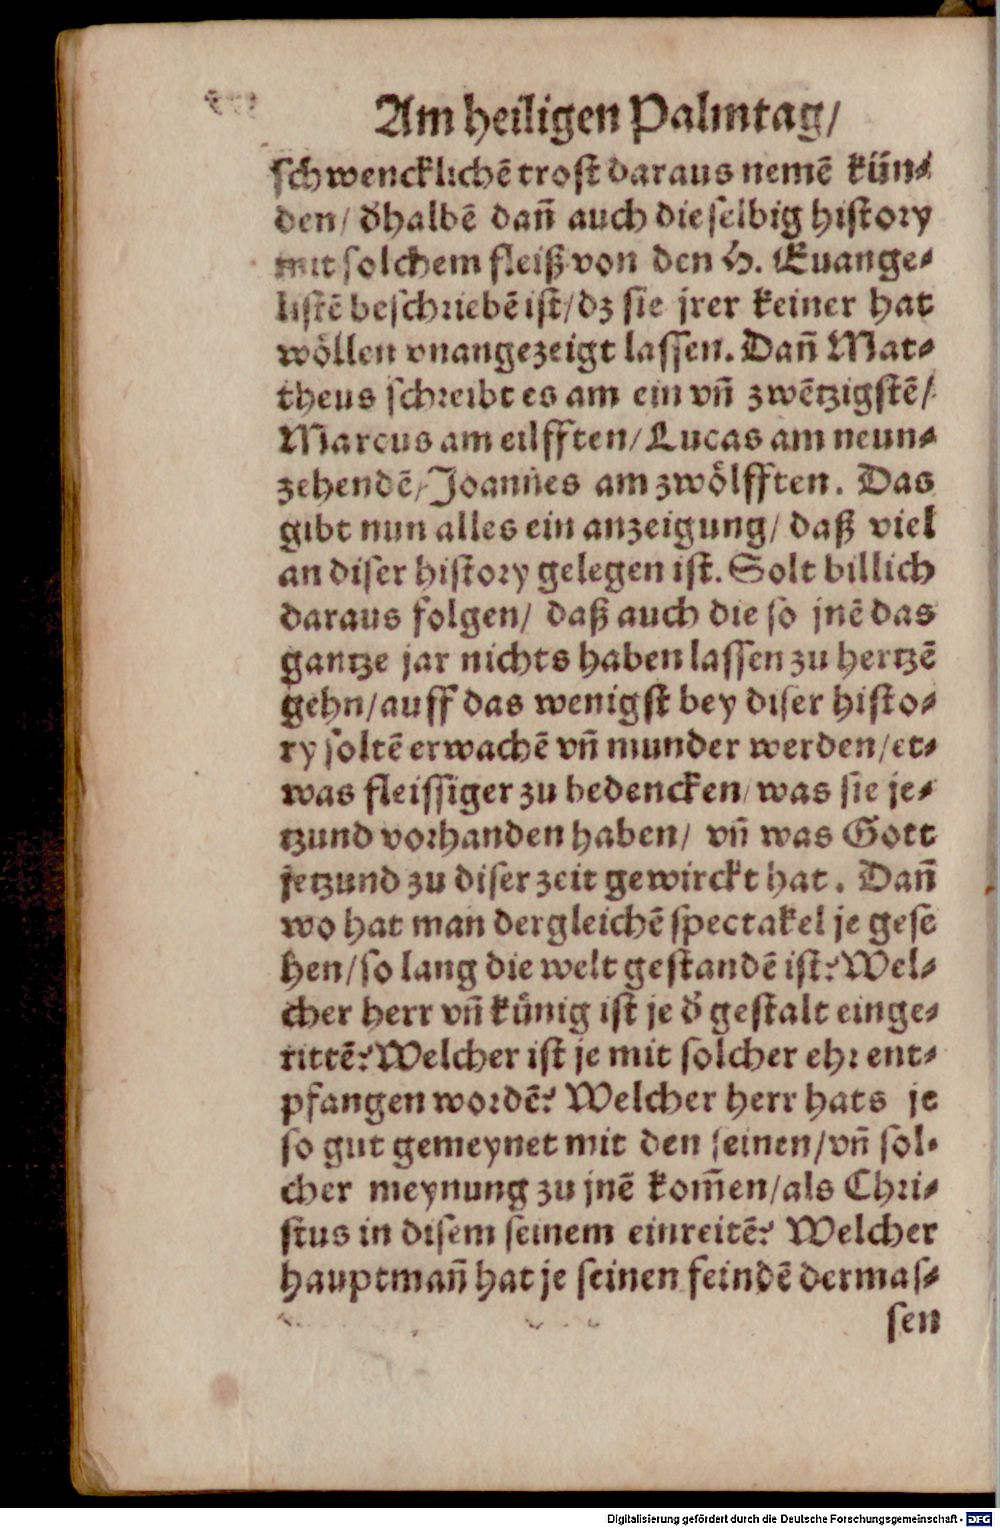 Am heiligen Palmtag/
schwencklichē trost daraus nemē kün⸗
den/ d̄halbē dañ auch dieselbig history
mit solchem fleiß von den H. Euange⸗
listē beschriebē ist/ dz sie jrer keiner hat
wöllen vnangezeigt lassen. Dañ Mat⸗
theus schreibt es am ein vñ zwētzigstē/
Marcus am eilfften/ Lucas am neun⸗
zehendē/ Joannes am zwölfften. Das
gibt nun alles ein anzeigung/ daß viel
an diser history gelegen ist. Solt billich
daraus folgen/ daß auch die so jnē das
gantze jar nichts haben lassen zu hertzē
gehn/ auff das wenigst bey diser histo⸗
ry soltē erwachē vñ munder werden/ et⸗
was fleissiger zu bedencken/ was sie je⸗
tzund vorhanden haben/ vñ was Gott
jetzund zu diser zeit gewirckt hat. Dañ
wo hat man dergleichē spectakel je gese
hen/ so lang die welt gestandē ist? Wel⸗
cher herr vñ künig ist je d̄ gestalt einge⸗
rittē? Welcher ist je mit solcher ehr ent⸗
pfangen wordē? Welcher herr hats je
so gut gemeynet mit den seinen/ vñ sol⸗
cher meynung zu jnē kom̄en/ als Chri⸗
stus in disem seinem einreitē? Welcher
hauptmañ hat je seinen feindē dermas⸗
sen
Digitalisierung gefördert durch die Deutsche Forschungsgemeinschaft - DFG